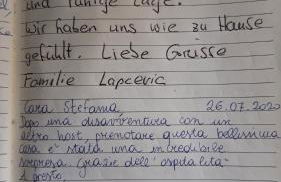 und ruhige Lage.
Wir haben uns wie zu Hause
gefühlt. Liebe Grüsse
Familie Lapcevic
Cara Stefania 26.07.2020
Dopo una disavventura con un
altro host, prenotare questa bellissima
casa è stata una incredibile
sorpresa. Grazie dell'ospitalità
A presto.